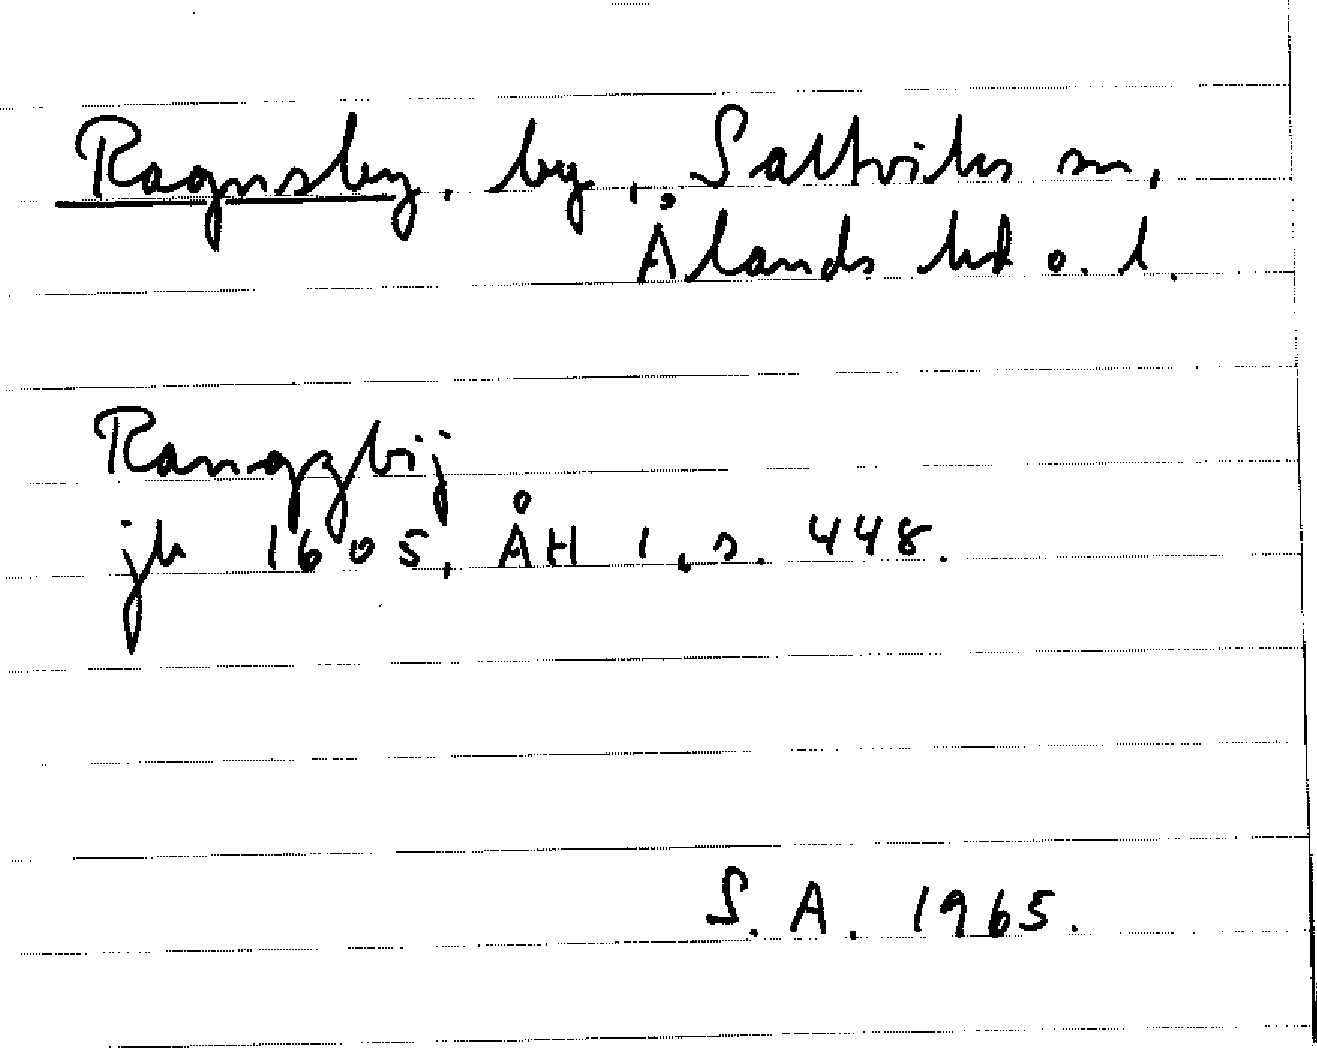 Ragnsby, by, Saltviks sn,
Ålands hd o. l.
Rangzbij
jb 1605, ÅH 1, s. 448.
S. A. 1965.